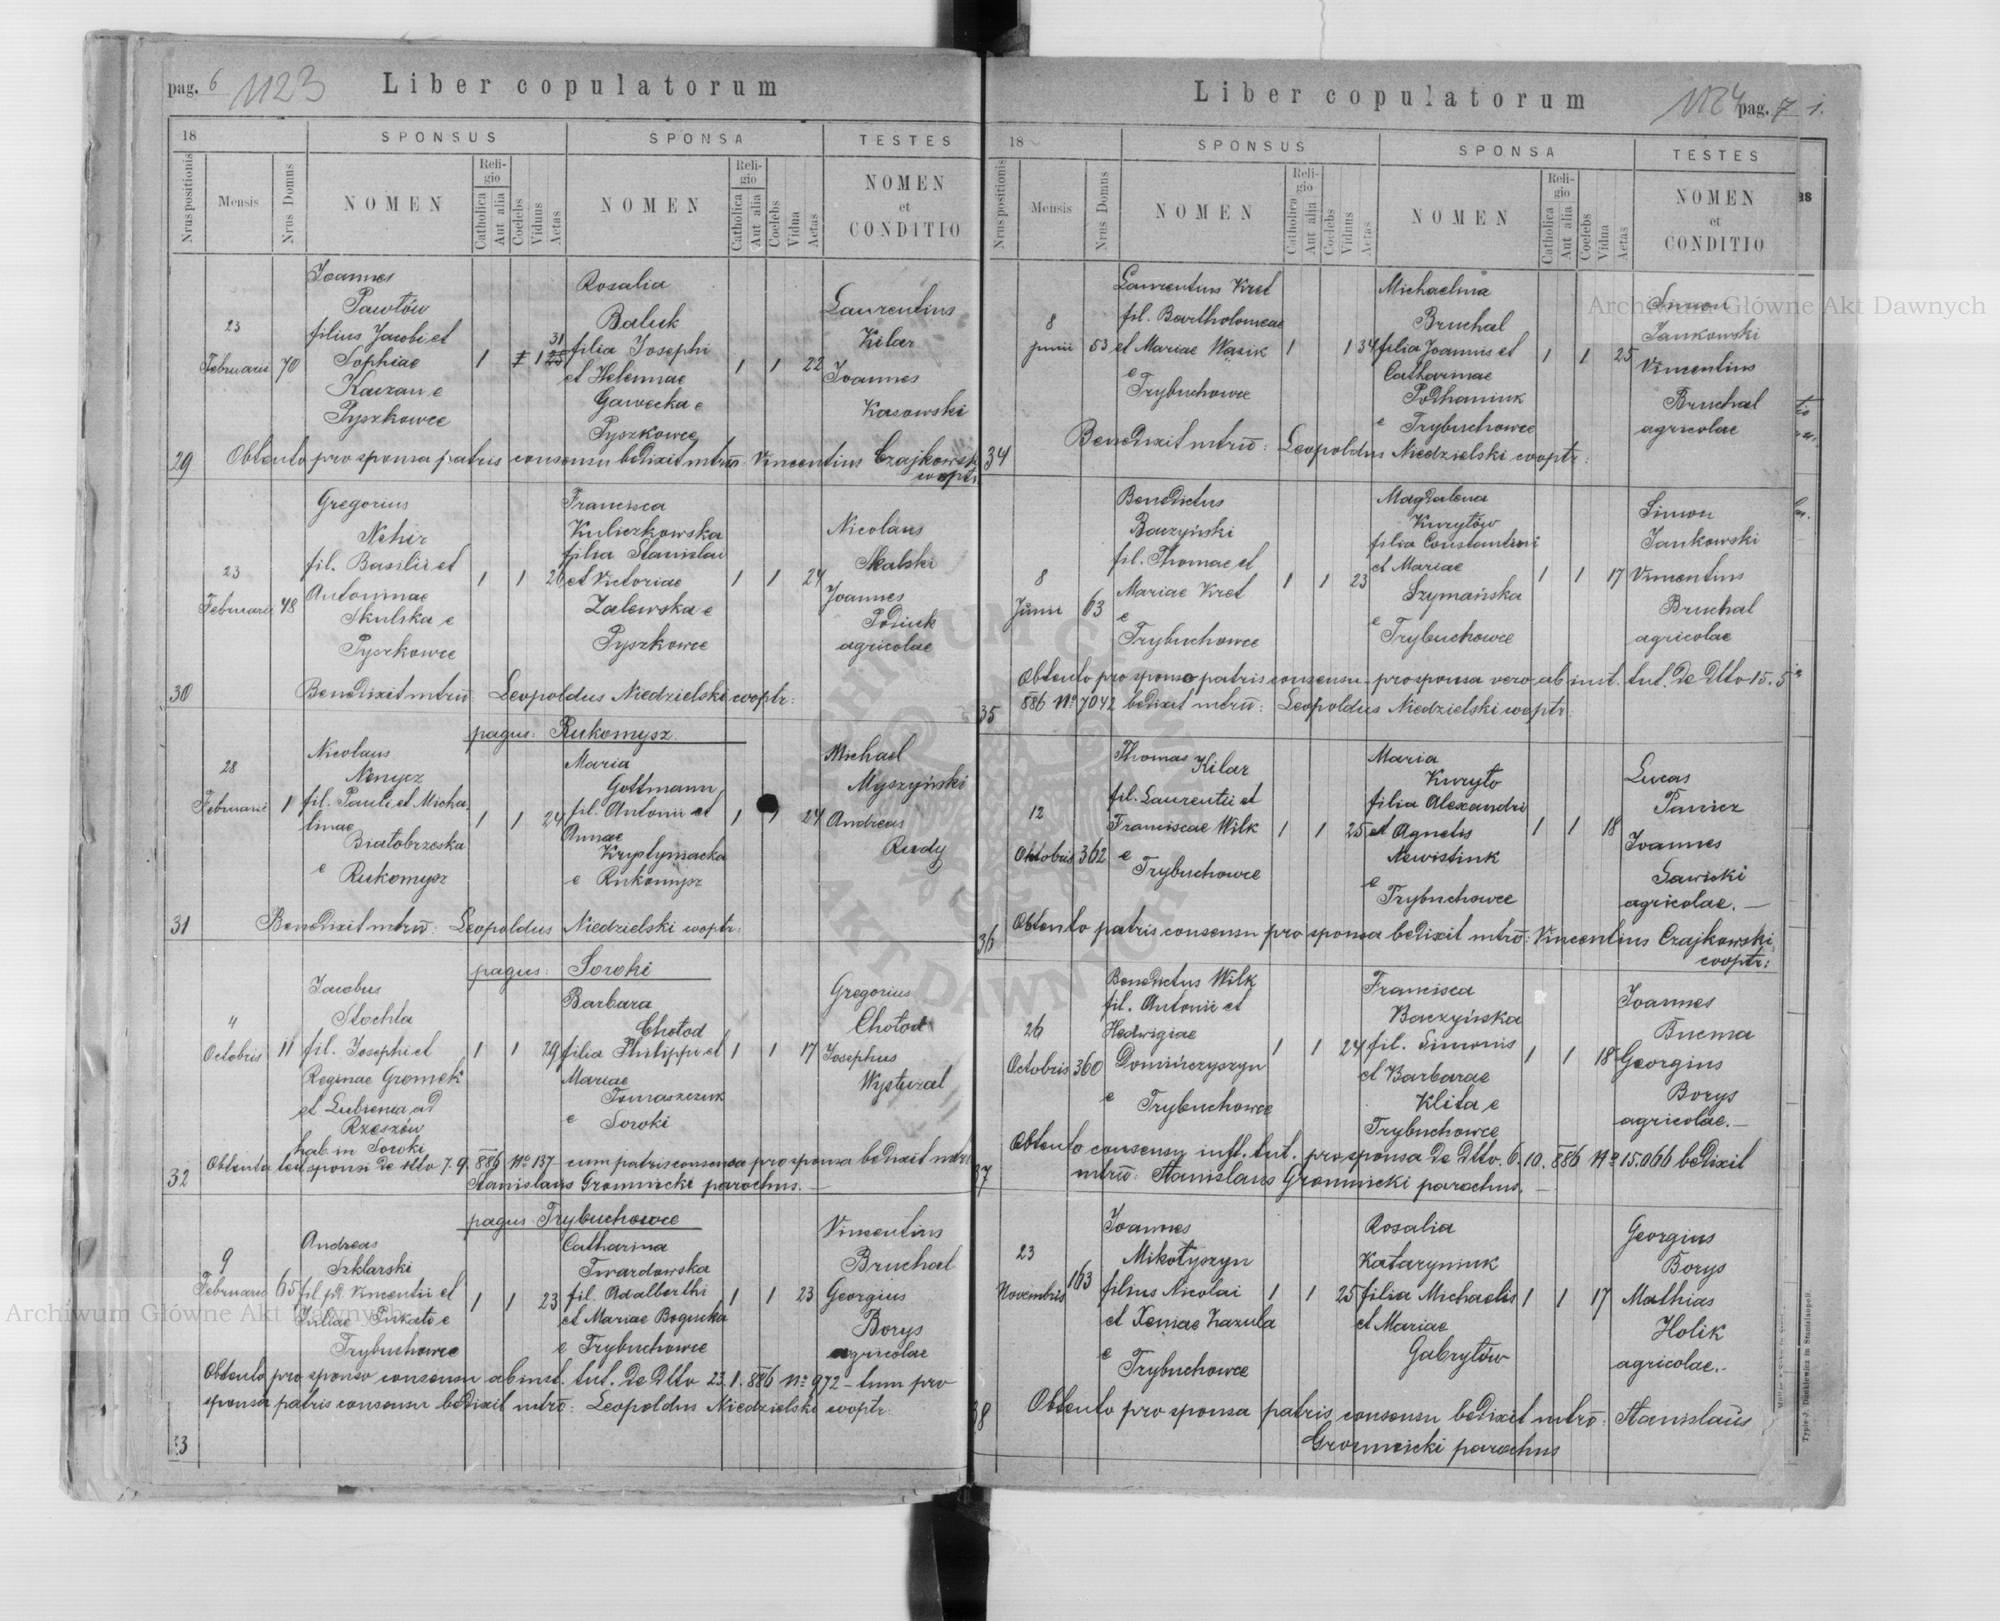 pag. 6 1123 Liber copulatorum
18
SPONSUS SPONSA TESTES
Nrus positionis
Mensis
Nrus Domus
NOMEN
Religio
Catholica
Aut alia
Coelebs
Viduus
Aetas
NOMEN
Religio
Catholica
Aut alia
Coelebs
Vidua
Aetas
NOMEN
et
CONDITIO
29
23
Februarii
70
Joannes
Pawłów
filius Jacobi et
Sophiae
Kaczan e
Pyszkowce
1 1 31
Rosalia
Baluk
filia Josephi
et Helennae
Gawecka e
Pyszkowce
1 1 22
Laurentius
Kilar
Joannes
Kasowski
Obtento pro sponsa patris consensu bedixit mtrm̄: Vincentius Czajkowski
cooptr:
30
23
Februarii
48
Gregorius
Nehir
fil. Basilii et
Antoninae
Skulska e
Pyszkowce
1 1 26
Francisca
Kuliczkowska
filia Stanislai
et Victoriae
Zalewska e
Pyszkowce
1 1 24
Nicolaus
Skalski
Joannes
Podiuk
agricolae
Benedixit mtrm̄: Leopoldus Niedzielski cooptr:
pagus: Rukomysz.
31
28
Februarii
1
Nicolaus
Nenycz
fil. Pauli et Micha
linae
Białobrzeska
e Rukomysz
1 1 24
Maria
Gottmann
fil. Antonii et
Annae
Kryptymacka
e Rukomysz
1 1 24
Michael
Myszyński
Andreas
Rudy
Benedixit mtrm̄: Leopoldus Niedzielski cooptr:
pagus: Soroki
32
"
Octobris
11
Jacobus
Stochła
fil. Josephi et
Reginae Gromek
et Lubenia ad
Rzeszów
hab. in Soroki
1 1 29
Barbara
Chołod
filia Philippi et
Mariae
Tomaszczuk
e Soroki
1 1 17
Gregorius
Chołod
Josephus
Wystuzal
Obtenta test. sponsi de dtto 7.9. 886 No 137 - cum patris consensu pro sponsa bedixit mtrm̄
Stanislaus Gromnicki parochus. —
pagus Trybuchowce
33
9
Februarii
65
Andreas
Szklarski
fil. pd. Vincentii et
Juliae Pukało e
Trybuchowce
1 1 23
Catharina
Twardowska
fil. Adalberthi
et Mariae Bogucka
e Trybuchowce
1 1 23
Vincentius
Bruchal
Georgius
Borys
agricolae
Obtento pro sponso consensu ab inst. tut. de dtto 23.1. 886 No 972 - tum pro
sponsa patris consensu bedixit mtrm̄: Leopoldus Niedzielski cooptr.
Liber copulatorum 1124 pag. 7
18
SPONSUS SPONSA TESTES
Nrus positionis
Mensis
Nrus Domus
NOMEN
Religio
Catholica
Aut alia
Coelebs
Viduus
Aetas
NOMEN
Religio
Catholica
Aut alia
Coelebs
Vidua
Aetas
NOMEN
et
CONDITIO
34
8
junii
53
Laurentius Kret
fil. Bartholomeae
et Mariae Wąsik
e
Trybuchowce
1 1 34
Michaelina
Bruchal
filia Joannis et
Catharinae
Podhaniuk
e Trybuchowce
1 1 25
Simon
Jankowski
Vincentius
Bruchal
agricolae
Benedixit mtrm̄: Leopoldus Niedzielski cooptr:
35
8
Junii
63
Benedictus
Baczyński
fil. Thomae et
Mariae Kret
e
Trybuchowce
1 1 23
Magdalena
Kuryłów
filia Constantini
et Mariae
Szymańska
e Trybuchowce
1 1 17
Simon
Jankowski
Vincentius
Bruchal
agricolae
Obtento pro sponso patris consensu - pro sponsa vero ab inst. tut. de dtto 15.5
886 No 7042 bedixit mtrm̄: Leopoldus Niedzielski cooptr.
36
12
Oktobris
362
Thomas Kilar
fil. Laurentii et
Franciscae Wilk
e
Trybuchowce
1 1 25
Maria
Kuryło
filia Alexandri
et Agnetis
Newistiuk
e
Trybuchowce
1 1 18
Lucas
Panicz
Joannes
Sawicki
agricolae. —
Obtento patris consensu pro sponsa bedixit mtrm̄: Vincentius Czajkowski
cooptr:
37
26
Octobris
360
Benedictus Wilk
fil. Antonii et
Hedwigiae
Domińczyszyn
e Trybuchowce
1 1 24
Francisca
Baczyńska
fil. Simonis
et Barbarae
Klita e
Trybuchowce
1 1 18
Joannes
Bucma
Georgius
Borys
agricolae. —
Obtento consensu inst. tut. pro sponsa de dtto. 6.10. 886 No 15.066 bedixit
mtrm̄: Stanislaus Gromnicki parochus. —
38
23
Novembris
163
Joannes
Mikołyszyn
filius Nicolai
et Xeniae Zazula
e
Trybuchowce
1 1 25
Rosalia
Kataryniuk
filia Michaelis
et Mariae
Gabryłów
1 1 17
Georgius
Borys
Mathias
Holik
agricolae.
Obtento pro sponsa patris consensu bedixit mtrm̄: Stanislaus
Gromnicki parochus
Archiwum Główne Akt Dawnych
Archiwum Główne Akt Dawnych
ARCHIWUM GŁÓWNE AKT DAWNYCH